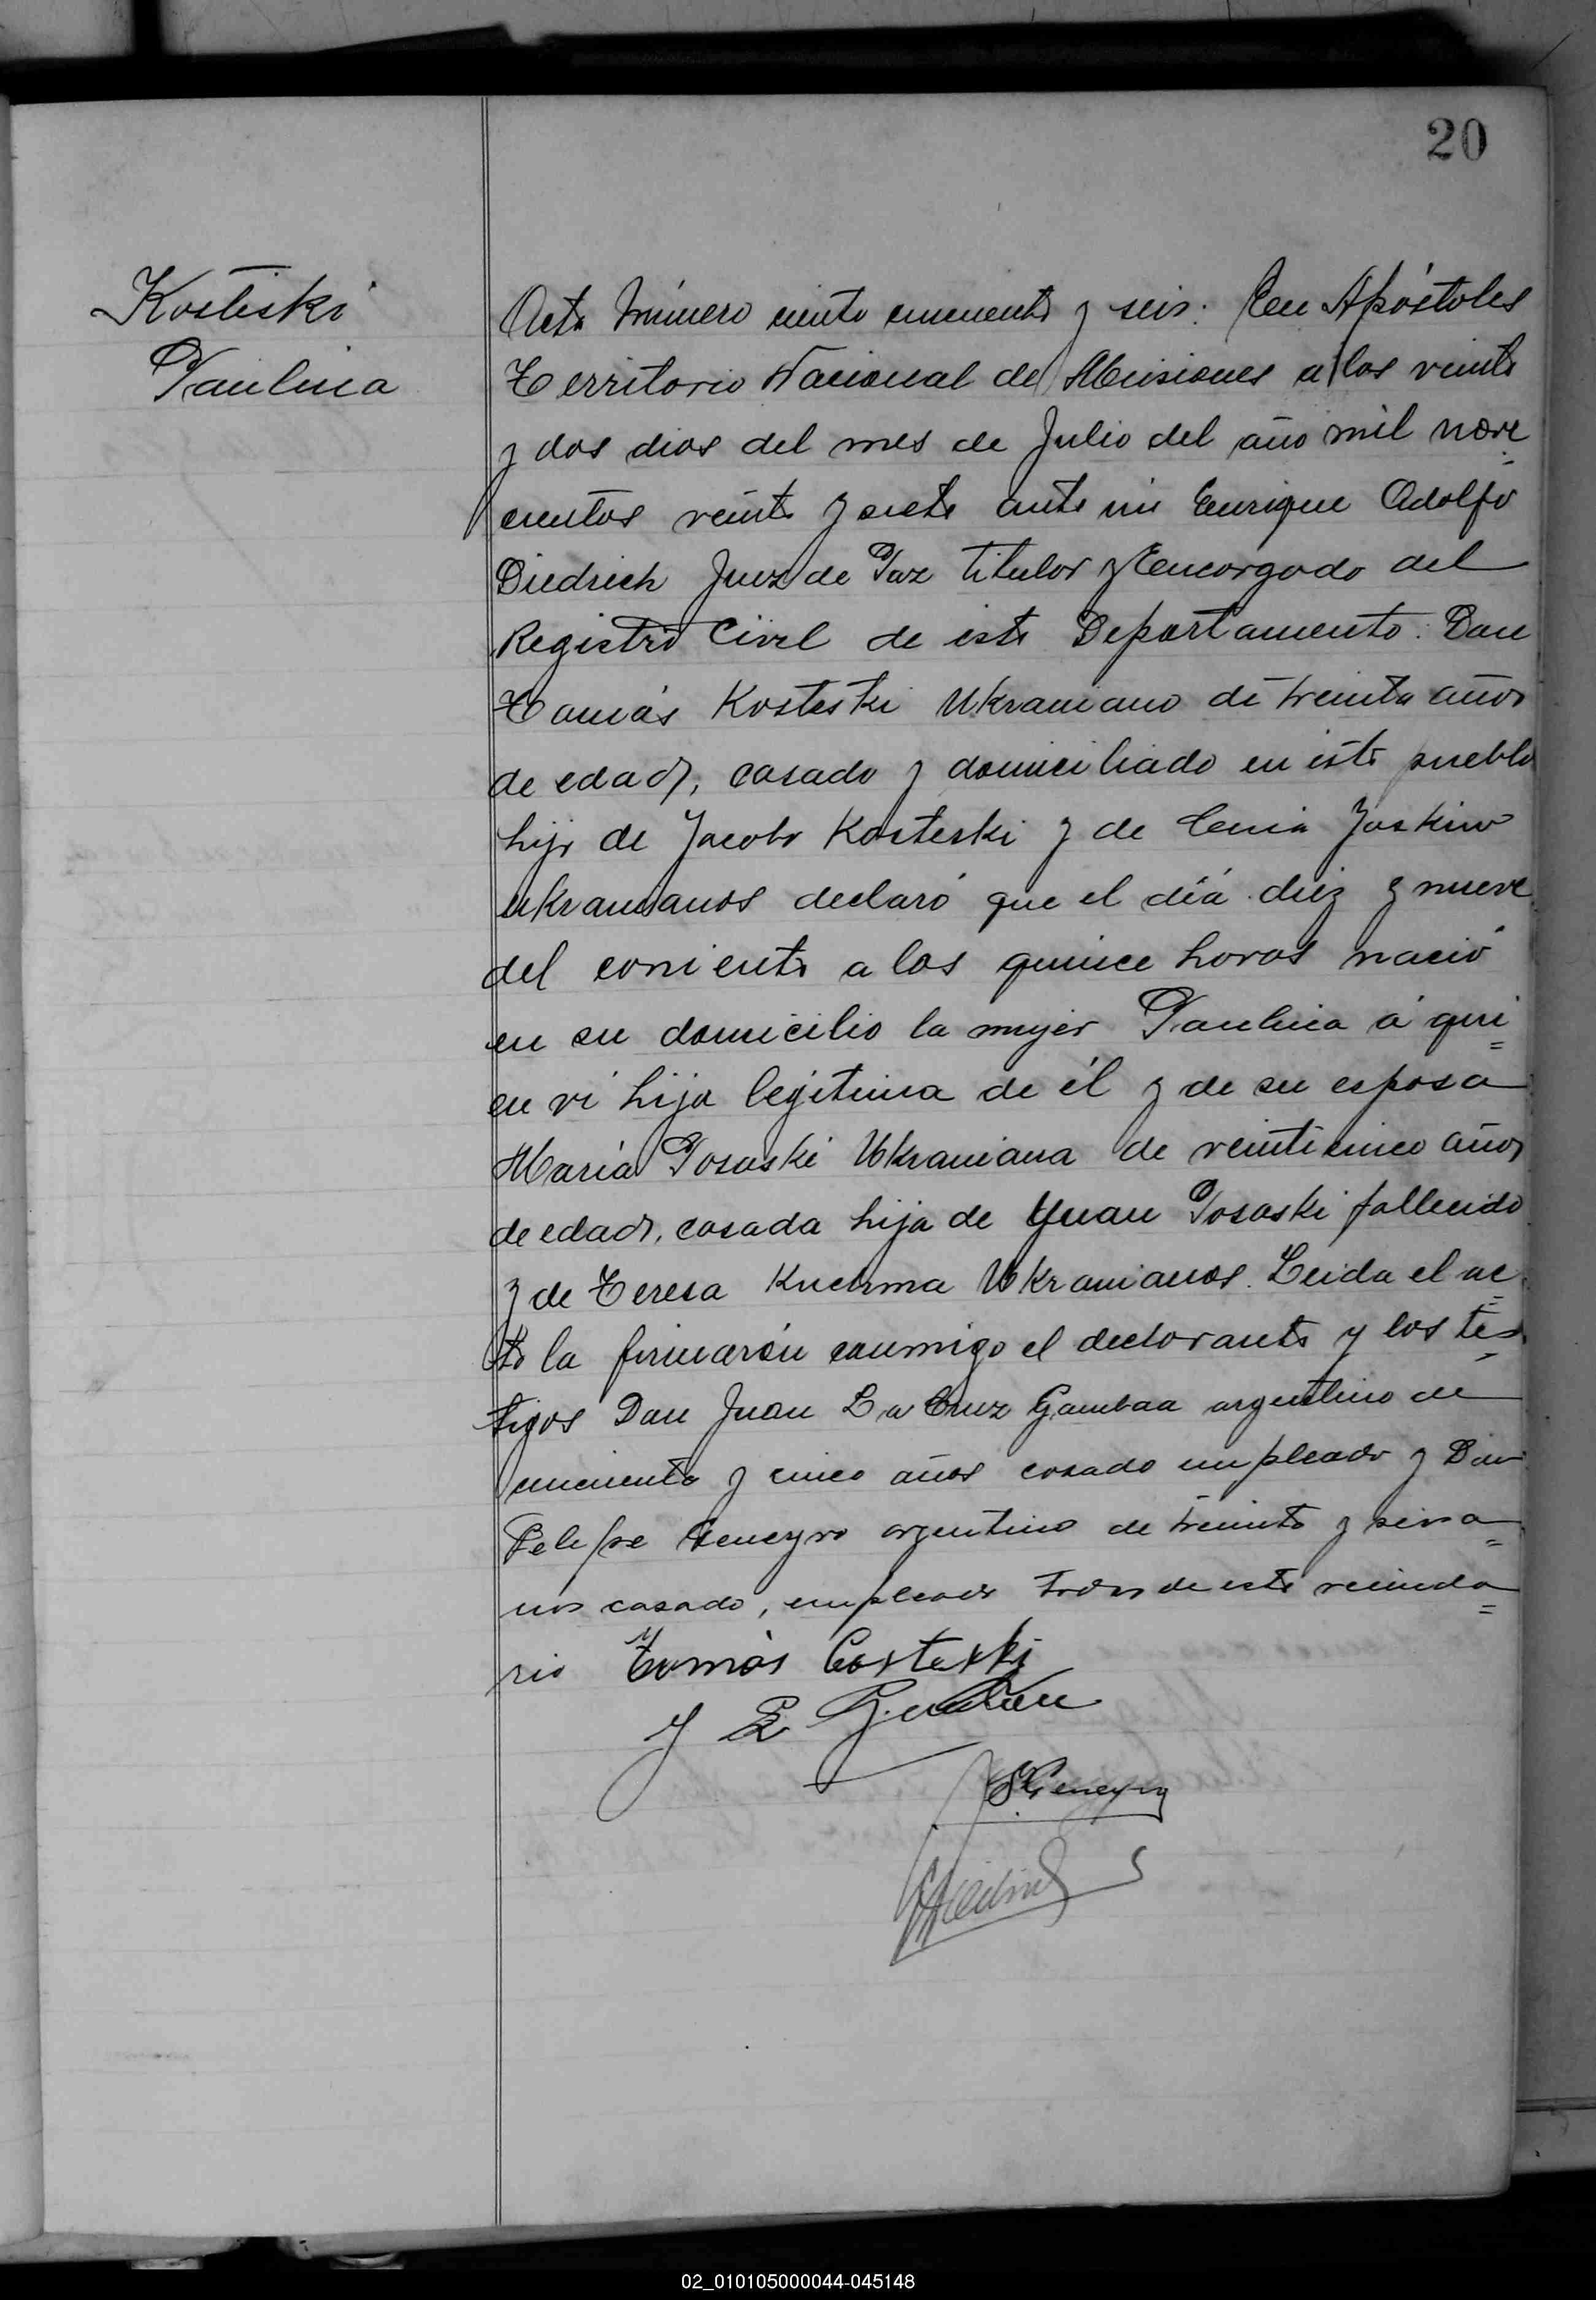 20
Kosteski
Paulina
Acta Número ciento cincuenta y seis. En Apóstoles
Territorio Nacional de Misiones a los veinte
y dos dias del mes de Julio del año mil nove
cientos veinte y siete ante mi Enrique Adolfo
Diedrich Juez de Paz titular y Encargado del
Registro Civil de este Departamento: Don
Tomás Kosteski Ukraniano de treinta años
de edad, casado y domiciliado en este pueblo
hijo de Jacobo Kosteski y de
ukranianos declaró que el día diez y nueve
del corriente a las quince horas nació
en su domicilio la mujer Paulina á qui=
en ví hija legitima de él y de su esposa
María Pososki Ukraniana de veinticinco años
de edad, casada hija de Juan Pososki fallecido
y de Teresa Kuchma Ukranianos. Leida el ac=
ta la firmarón conmigo el declorante y los tes=
tigos Don Juan La Cruz argentino de
cincuenta y cinco años casado empleado y Don
Felipe Geneyro argentino de treinta y seis a=
ños casado, empleado todos de este vecinda=
rio Tomàs Costeski
J L
Geneyro
02_010105000044-045148